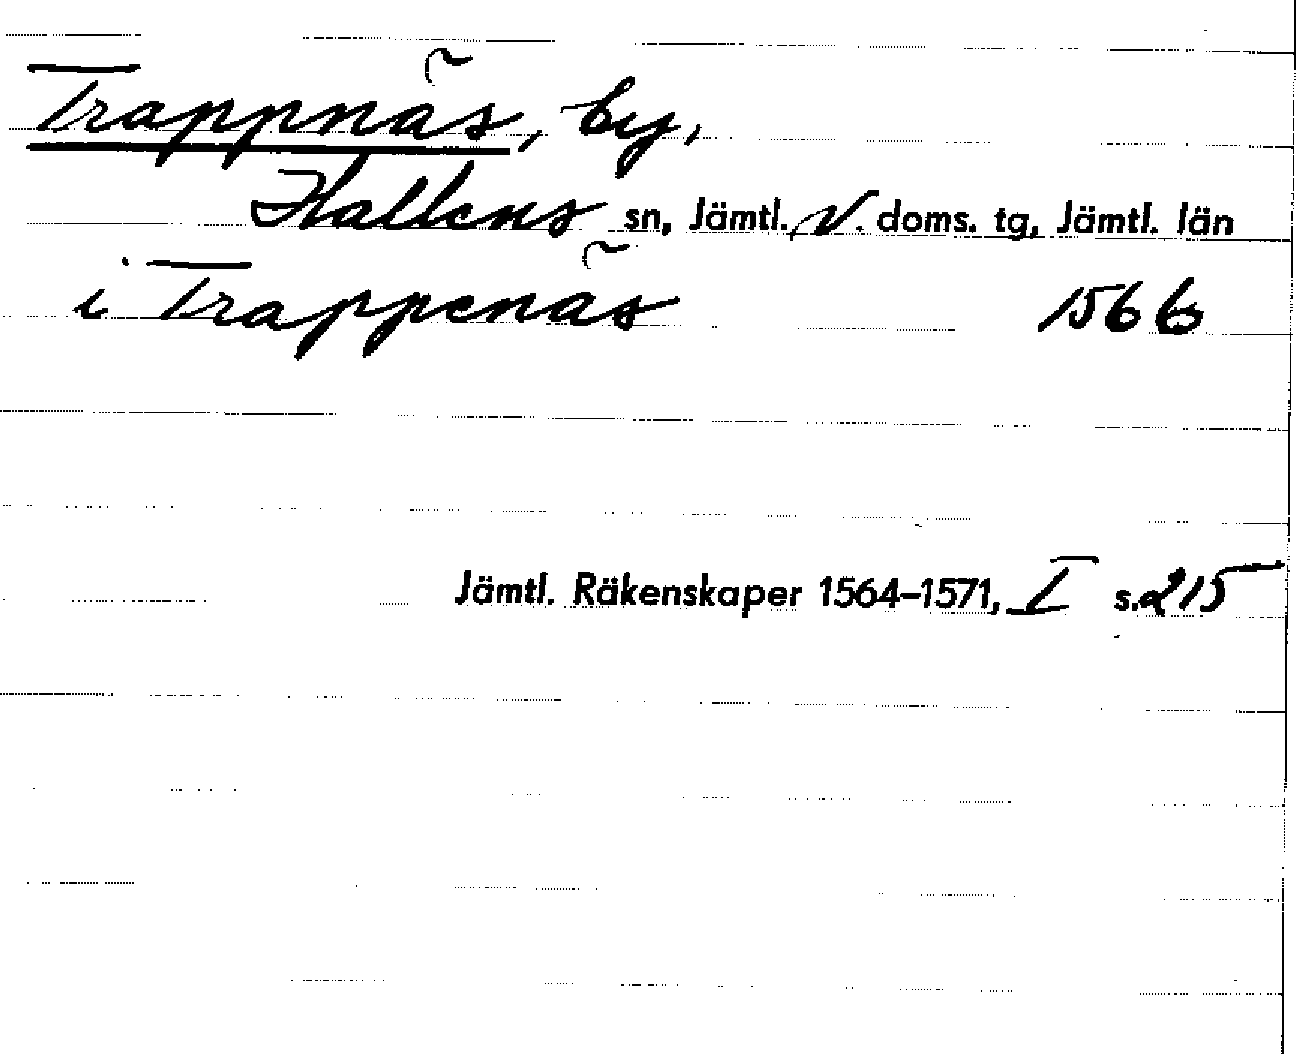 Trappnäs, by,
Hallens sn, Jämtl. V. doms. tg, Jämtl. län
i Trappenäs 1566
Jämtl. Räkenskaper 1564–1571, I s. 215